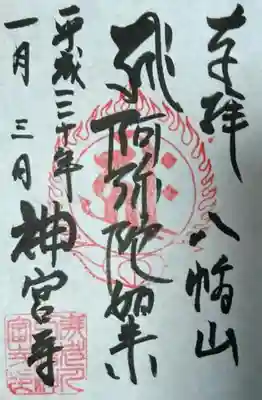 奉拝 八幡山
阿弥陀如来
平成二十年
一月三日 神宮寺